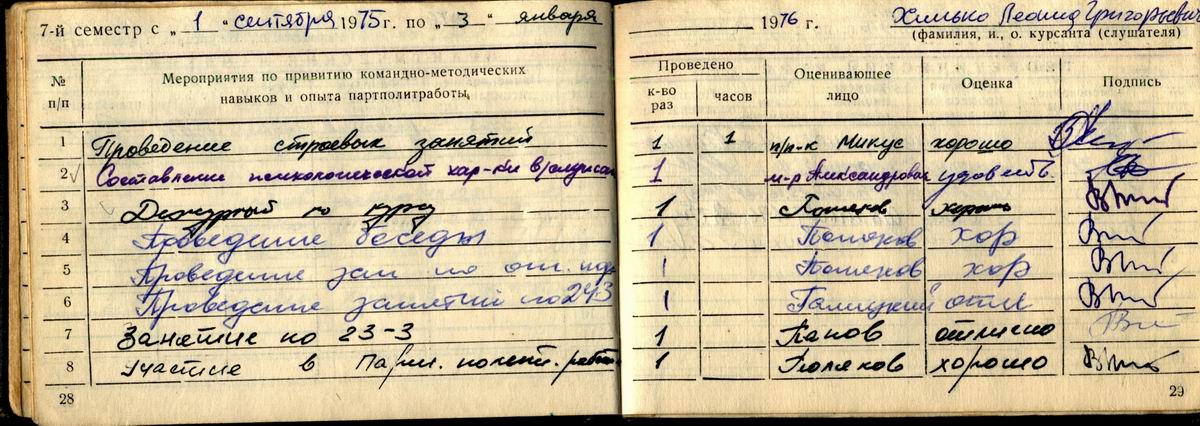 7-й семестр с „ 1 “ сентября 1975 г. по „ 3 “ января 1976 г.
Химько Леонид Григорьевич
(фамилия, и., о. курсанта (слушателя)
№ п/п
Мероприятия по привитию командно-методических
навыков и опыта партполитработы
Проведено
к-во раз
часов
Оценивающее лицо
Оценка
Подпись
1 Проведение строевых занятий 1 1 п/п-к Микус хорошо
2 Составление психологической хар-ки 1 м-р удовлетв.
3 Дежурный по курсу 1 хорошо
4 Проведение беседы 1 хор
5 Проведение зан по 1 хор
6 Проведение занятий по 1 Галицкий отл
7 Занятие по 23-3 1 Панов отлично
8 Участие в Парт. полит. работе 1 Поляков хорошо
28
29